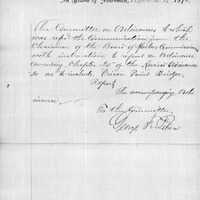 In Board of Aldermen, 18
The Committee on Ordinances to which
was refd. the Communication from the
Chairman of the Board of Harbor Commission
with instructions to report an Ordinance
amending Chapter 25 of the Revised Ordinances
so as to include Prison Point Bridge,
Report
The accompanying Ordi-
nance.
For the Committee
Geo.